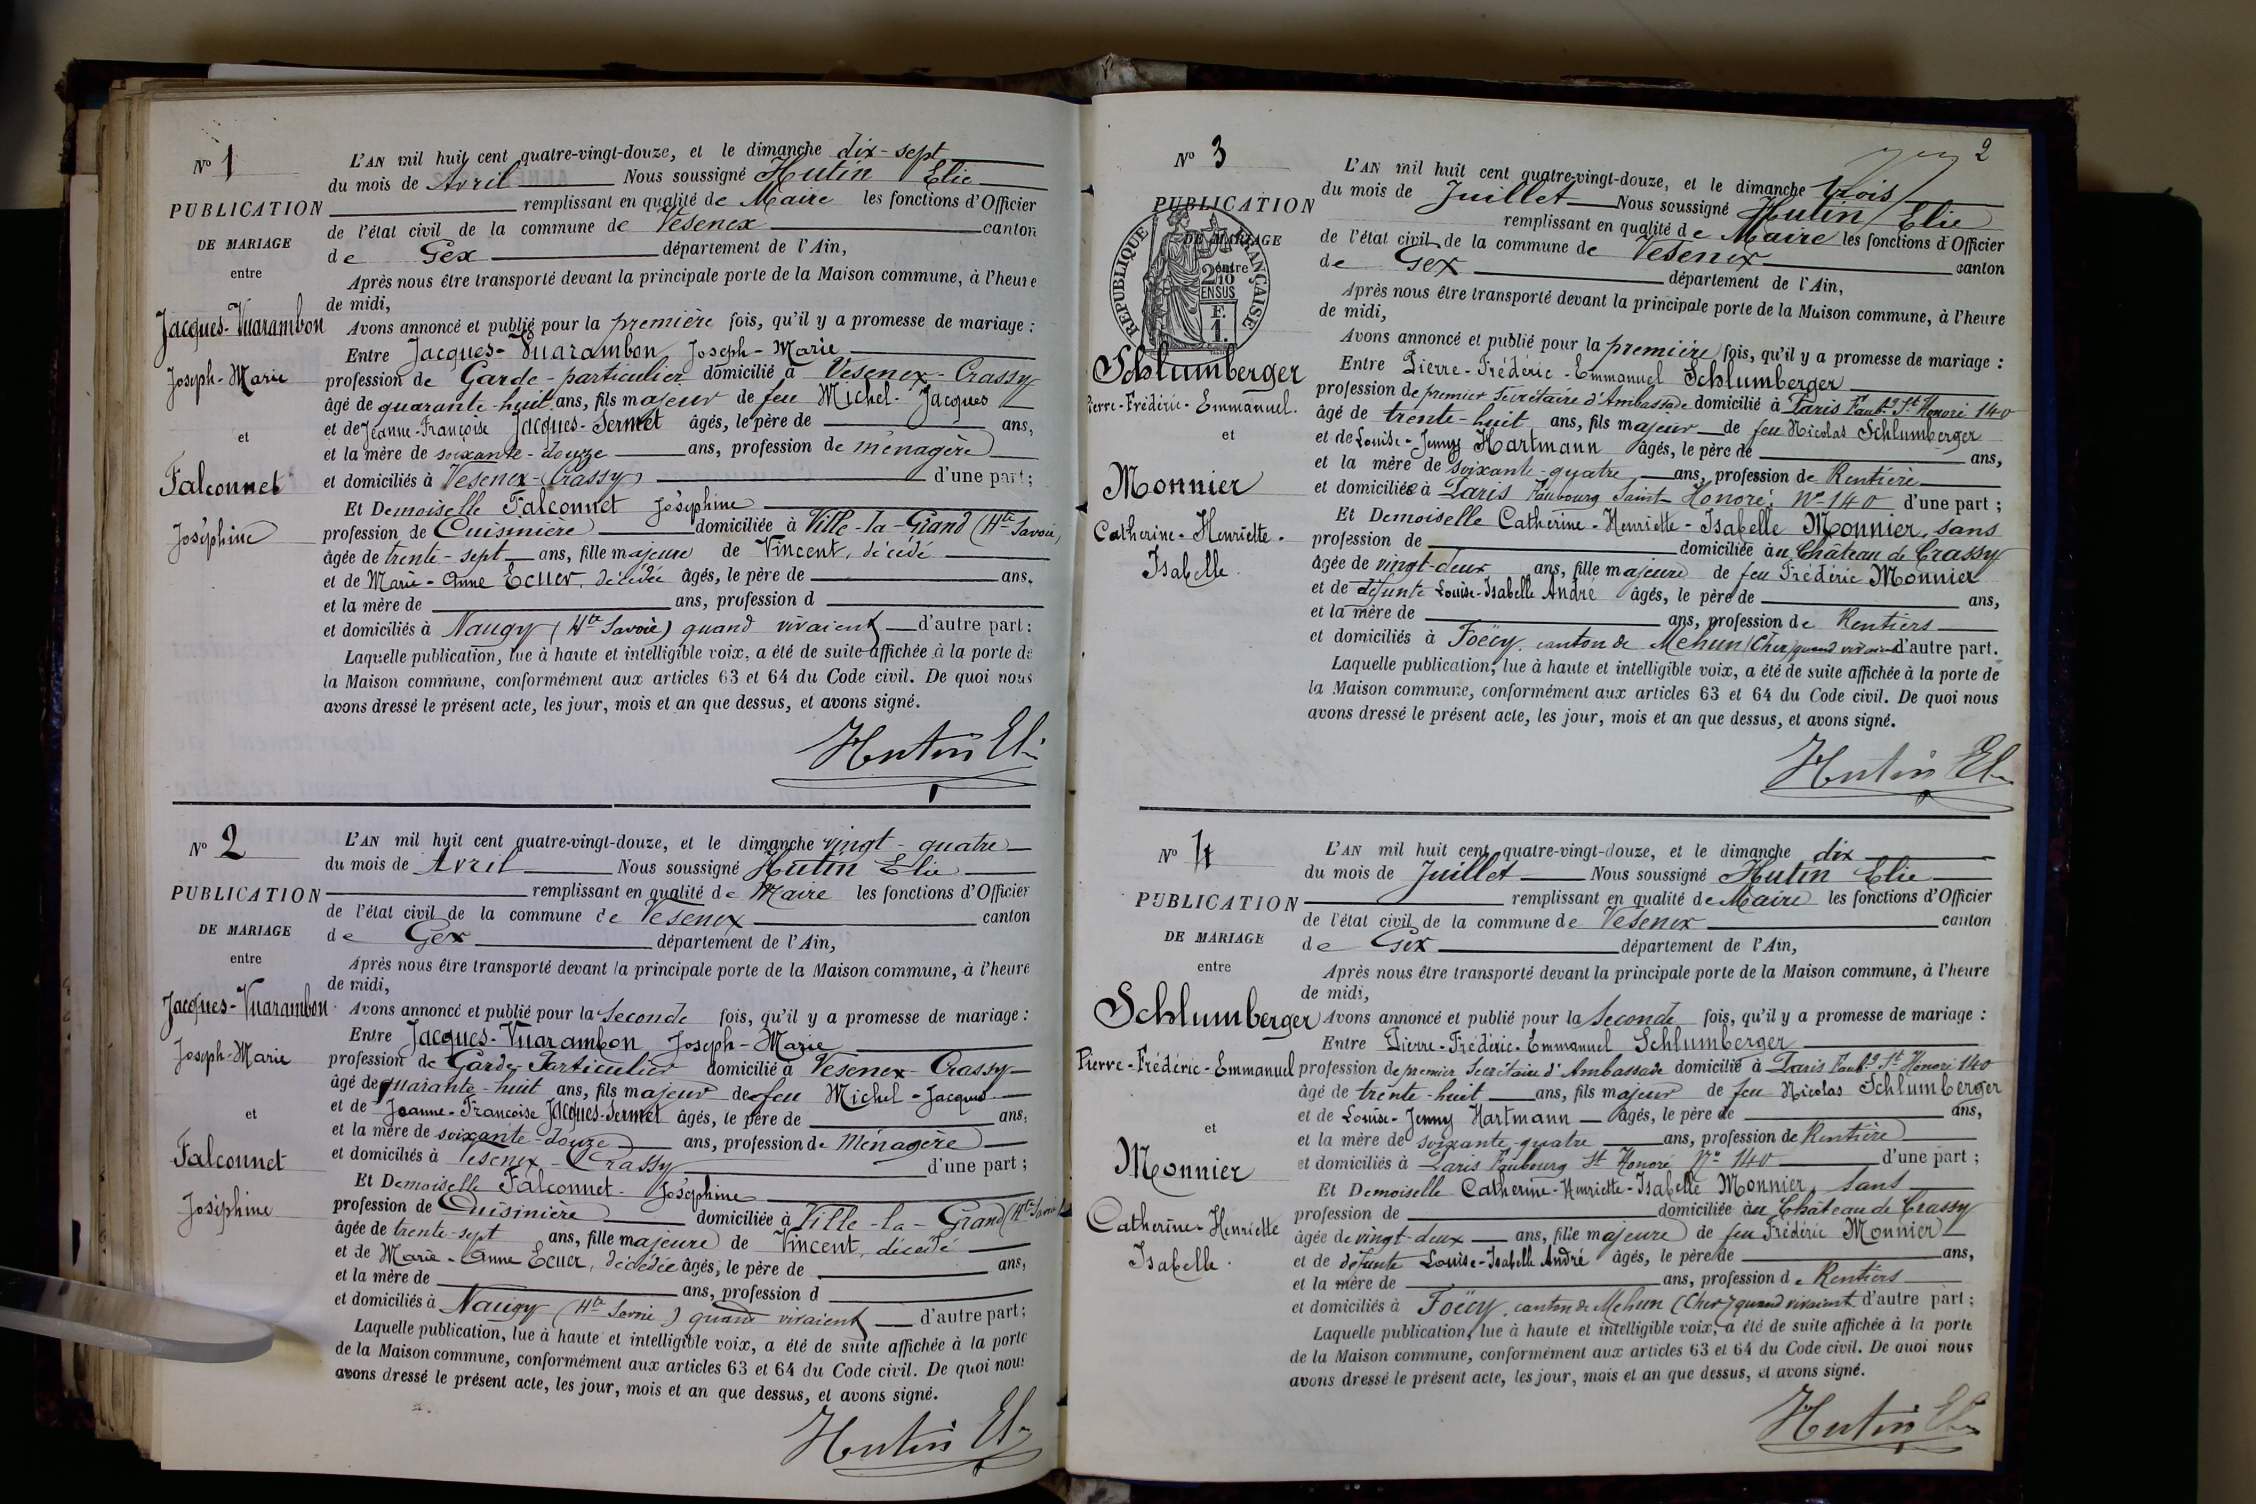 Nº 1
PUBLICATION
DE MARIAGE
entre
Jacques-Vuarambon
Joseph-Marie
et
Falconnet
Joséphine
L'AN mil huit cent quatre-vingt-douze, et le dimanche dix-sept
du mois de Avril Nous soussigné Hutin Elie
remplissant en qualité de Maire les fonctions d'Officier
de l'état civil de la commune de Vesenex canton
de Gex département de l'Ain,
Après nous être transporté devant la principale porte de la Maison commune, à l'heure
de midi,
Avons annoncé et publié pour la première fois, qu'il y a promesse de mariage :
Entre Jacques-Vuarambon Joseph-Marie
profession de Garde-particulier domicilié à Vesenex-Crassy
âgé de quarante-huit ans, fils majeur de feu Michel-Jacques
et de Jeanne-Françoise Jacques-Sermet âgés, le père de ans,
et la mère de soixante-douze ans, profession de ménagère
et domiciliés à Vesenex-Crassy d'une part ;
Et Demoiselle Falconnet Joséphine
profession de Cuisinière domiciliée à Ville-la-Grand (Hte Savoie)
âgée de trente-sept ans, fille majeure de Vincent, décédé
et de Marie-Anne Ecuer, décédée âgés, le père de ans,
et la mère de ans, profession d
et domiciliés à Naugy (Hte Savoie) quand vivaient d'autre part :
Laquelle publication, lue à haute et intelligible voix, a été de suite affichée à la porte de
la Maison commune, conformément aux articles 63 et 64 du Code civil. De quoi nous
avons dressé le présent acte, les jour, mois et an que dessus, et avons signé.
Hutin Elie
Nº 2
PUBLICATION
DE MARIAGE
entre
Jacques-Vuarambon
Joseph-Marie
et
Falconnet
Joséphine
L'AN mil huit cent quatre-vingt-douze, et le dimanche vingt-quatre
du mois de Avril Nous soussigné Hutin Elie
remplissant en qualité de Maire les fonctions d'Officier
de l'état civil de la commune de Vesenex canton
de Gex département de l'Ain,
Après nous être transporté devant la principale porte de la Maison commune, à l'heure
de midi,
Avons annoncé et publié pour la seconde fois, qu'il y a promesse de mariage :
Entre Jacques-Vuarambon Joseph-Marie
profession de Garde-Particulier domicilié à Vesenex-Crassy
âgé de quarante-huit ans, fils majeur de feu Michel-Jacques
et de Jeanne-Françoise Jacques-Sermet âgés, le père de ans,
et la mère de soixante-douze ans, profession de Ménagère
et domiciliés à Vesenex-Crassy d'une part ;
Et Demoiselle Falconnet Joséphine
profession de Cuisinière domiciliée à Ville-la-Grand (Hte Savoie)
âgée de trente-sept ans, fille majeure de Vincent, décédé
et de Marie-Anne Ecuer, décédée âgés, le père de ans,
et la mère de ans, profession d
et domiciliés à Naugy (Hte Savoie) quand vivaient d'autre part ;
Laquelle publication, lue à haute et intelligible voix, a été de suite affichée à la porte
de la Maison commune, conformément aux articles 63 et 64 du Code civil. De quoi nous
avons dressé le présent acte, les jour, mois et an que dessus, et avons signé.
Hutin Elie
2
Nº 3
PUBLICATION
DE MARIAGE
entre
RÉPUBLIQUE FRANÇAISE
2/10
EN SUS
F.
1.
Schlumberger
Pierre-Frédéric-Emmanuel.
et
Monnier
Catherine-Henriette-
Isabelle.
L'AN mil huit cent quatre-vingt-douze, et le dimanche trois
du mois de Juillet Nous soussigné Hutin Elie
remplissant en qualité de Maire les fonctions d'Officier
de l'état civil de la commune de Vesenex canton
de Gex département de l'Ain,
Après nous être transporté devant la principale porte de la Maison commune, à l'heure
de midi,
Avons annoncé et publié pour la première fois, qu'il y a promesse de mariage :
Entre Pierre-Frédéric-Emmanuel Schlumberger
profession de premier Secrétaire d'Ambassade domicilié à Paris Faubg St Honoré 140
âgé de trente-huit ans, fils majeur de feu Nicolas Schlumberger
et de Louise-Jenny Hartmann âgés, le père de ans,
et la mère de soixante-quatre ans, profession de Rentière
et domiciliés à Paris Faubourg Saint Honoré, Nº 140 d'une part ;
Et Demoiselle Catherine-Henriette-Isabelle Monnier, sans
profession de domiciliée au Château de Crassy
âgée de vingt-deux ans, fille majeure de feu Frédéric Monnier
et de défunte Louise-Isabelle André âgés, le père de ans,
et la mère de ans, profession de Rentiers
et domiciliés à Foëcy, canton de Mehun (Cher) quand vivaient d'autre part.
Laquelle publication, lue à haute et intelligible voix, a été de suite affichée à la porte de
la Maison commune, conformément aux articles 63 et 64 du Code civil. De quoi nous
avons dressé le présent acte, les jour, mois et an que dessus, et avons signé.
Hutin Elie
Nº 4
PUBLICATION
DE MARIAGE
entre
Schlumberger
Pierre-Frédéric-Emmanuel
et
Monnier
Catherine-Henriette
Isabelle.
L'AN mil huit cent quatre-vingt-douze, et le dimanche dix
du mois de Juillet Nous soussigné Hutin Elie
remplissant en qualité de Maire les fonctions d'Officier
de l'état civil de la commune de Vesenex canton
de Gex département de l'Ain,
Après nous être transporté devant la principale porte de la Maison commune, à l'heure
de midi,
Avons annoncé et publié pour la seconde fois, qu'il y a promesse de mariage :
Entre Pierre-Frédéric-Emmanuel Schlumberger
profession de premier Secrétaire d'Ambassade domicilié à Paris Faubg St Honoré 140
âgé de trente-huit ans, fils majeur de feu Nicolas Schlumberger
et de Louise-Jenny Hartmann âgés, le père de ans,
et la mère de soixante-quatre ans, profession de Rentière
et domiciliés à Paris Faubourg St Honoré Nº 140 d'une part ;
Et Demoiselle Catherine-Henriette-Isabelle Monnier, sans
profession de domiciliée au Château de Crassy
âgée de vingt-deux ans, fille majeure de feu Frédéric Monnier
et de défunte Louise-Isabelle André âgés, le père de ans,
et la mère de ans, profession de Rentiers
et domiciliés à Foëcy, canton de Mehun (Cher) quand vivaient d'autre part ;
Laquelle publication, lue à haute et intelligible voix, a été de suite affichée à la porte
de la Maison commune, conformément aux articles 63 et 64 du Code civil. De quoi nous
avons dressé le présent acte, les jour, mois et an que dessus, et avons signé.
Hutin Elie